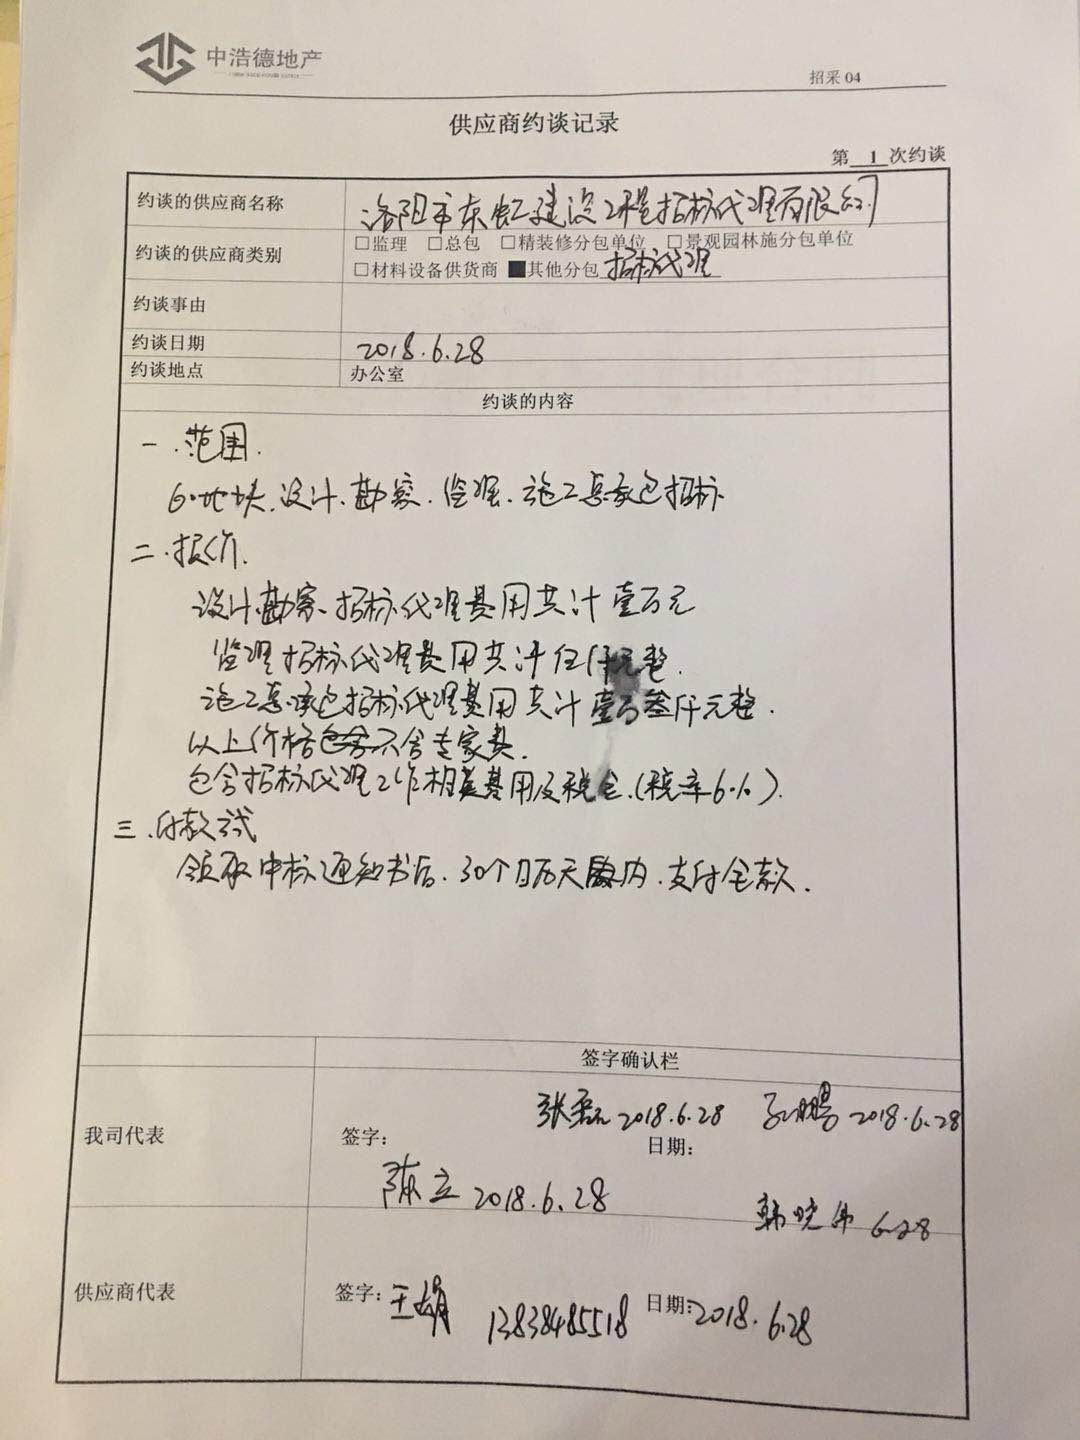 中浩德地产
招采 04
供应商约谈记录
第 1 次约谈
约谈的供应商名称 洛阳市东虹建设工程招标代理有限公司
约谈的供应商类别 □监理 □总包 □精装修分包单位 □景观园林施分包单位
□材料设备供货商 ■其他分包 招标代理
约谈事由
约谈日期 2018.6.28
约谈地点 办公室
约谈的内容
一.范围.
6#地块.设计.勘察.监理.施工总承包招标
二.报价.
设计.勘察.招标代理费用共计壹万元
监理招标代理费用共计伍仟元整.
施工总承包招标代理费用共计壹万叁仟元整.
以上价格不含专家费.
包含招标代理工作相关费用及税金.(税率6%).
三.付款方式
领取中标通知书后.30个日历天内.支付全款.
签字确认栏
我司代表 签字: 日期:
张磊 2018.6.28 孔鹏 2018.6.28
陈立 2018.6.28
韩晓伟 6.28
供应商代表 签字: 王娟 13838485518 日期: 2018.6.28